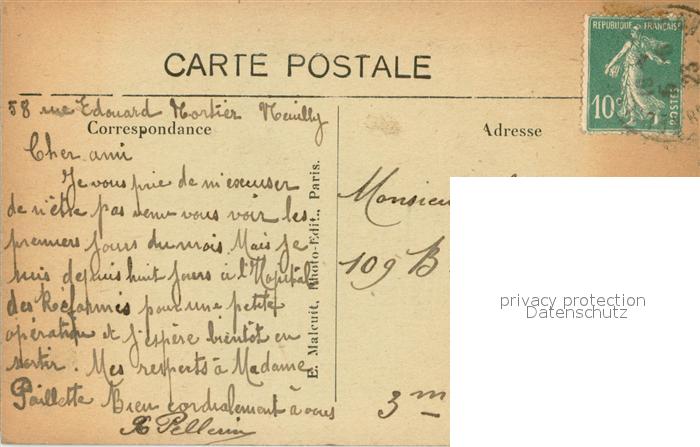 CARTE POSTALE
RÉPUBLIQUE FRANÇAISE
10c
POSTES
58 rue Edouard Mortier Neuilly
Correspondance
Adresse
Cher ami
Je vous prie de m'excuser
de n'être pas venu vous voir les
premiers jours du mois. Mais je
suis depuis huit jours à l'Hopital
des Réformés pour une petite
opération et j'espère bientôt en
sortir. Mes respects à Madame
Paillette Bien cordialement à vous
Pellerin
E. Malcuit, Photo-Edit., Paris.
Monsieur
109 B
3m
privacy protection
Datenschutz